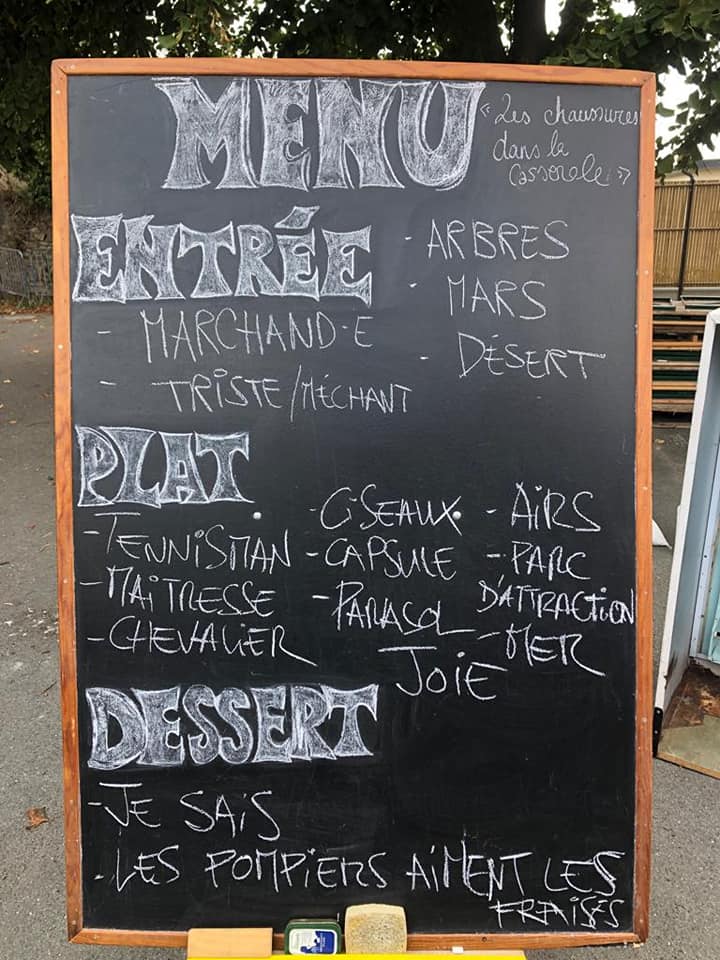 MENU
« Les chaussures
dans la
Casserole »
ENTRÉE
- MARCHAND·E
- TRISTE/MÉCHANT
- ARBRES
- MARS
- DÉSERT
PLAT
- TENNISMAN
- MAITRESSE
- CHEVALIER
- CISEAUX
- CAPSULE
- PARASOL
JOIE
- AIRS
- PARC
D'ATTRACTION
- MER
DESSERT
- JE SAIS
- LES POMPIERS AIMENT LES
FRAISES